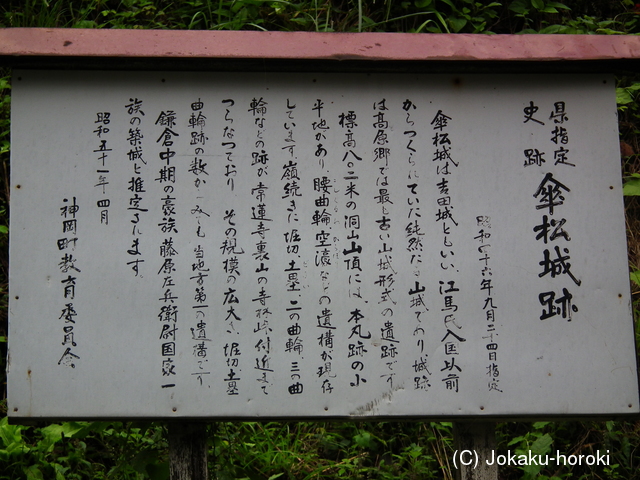 県指定
史跡
傘松城跡
昭和四十六年九月二十四日指定
傘松城は吉田城ともいい、江馬氏入国以前
からつくられていた純然たる山城であり城跡
は高原郷では最も古い山城形式の遺跡です
標高八〇二米の洞山山頂には、本丸跡の小
平地があり、腰曲輪、空濠などの遺構が現存
しています。嶺続きに堀切、土塁、二の曲輪、三の曲
輪などの跡が常蓮寺裏山の寺林峠付近まで
つらなっており その規模の広大さ、堀切、土塁
曲輪跡の数からみても当地方第一の遺構です
鎌倉中期の豪族藤原左兵衛尉国家一
族の築城と推定されます。
昭和五十一年四月
神岡町教育委員会
(C) Jokaku-horoki